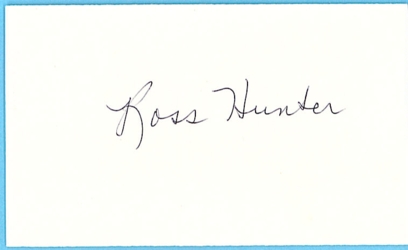 Ross Hunter